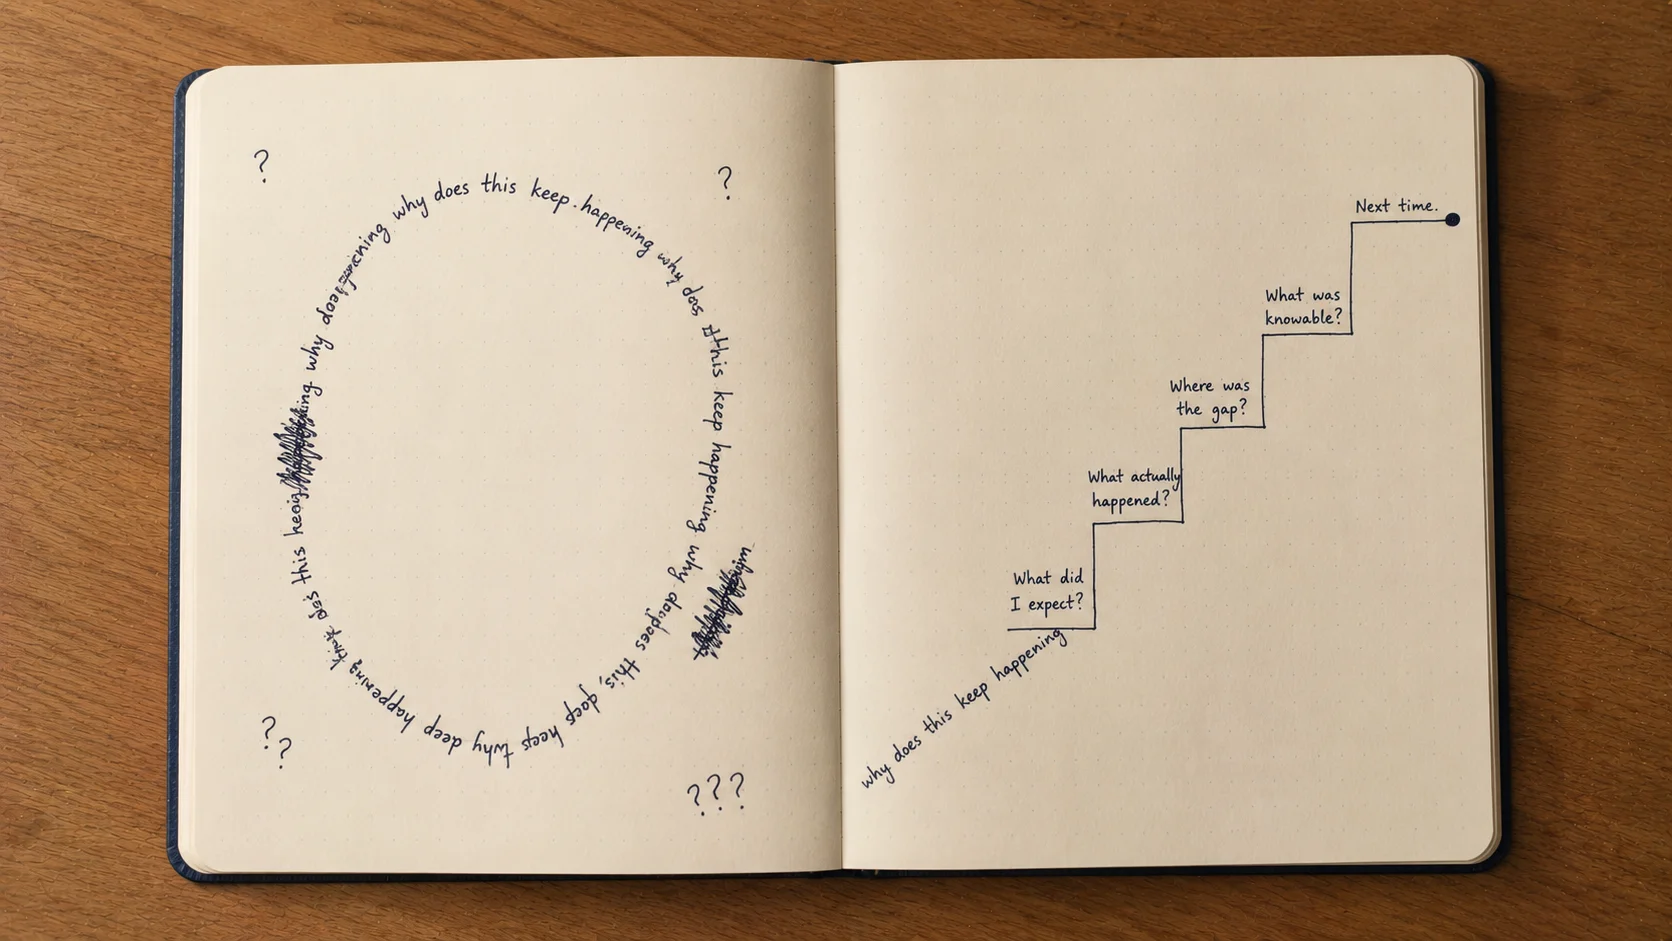 ?
?
why does this keep. happening why das this keep happening why this, why deep happening this why why
? ?
? ? ?
Next time.
What was
knowable?
Where was
the gap?
What actually
happened?
What did
I expect?
why does this keep happening